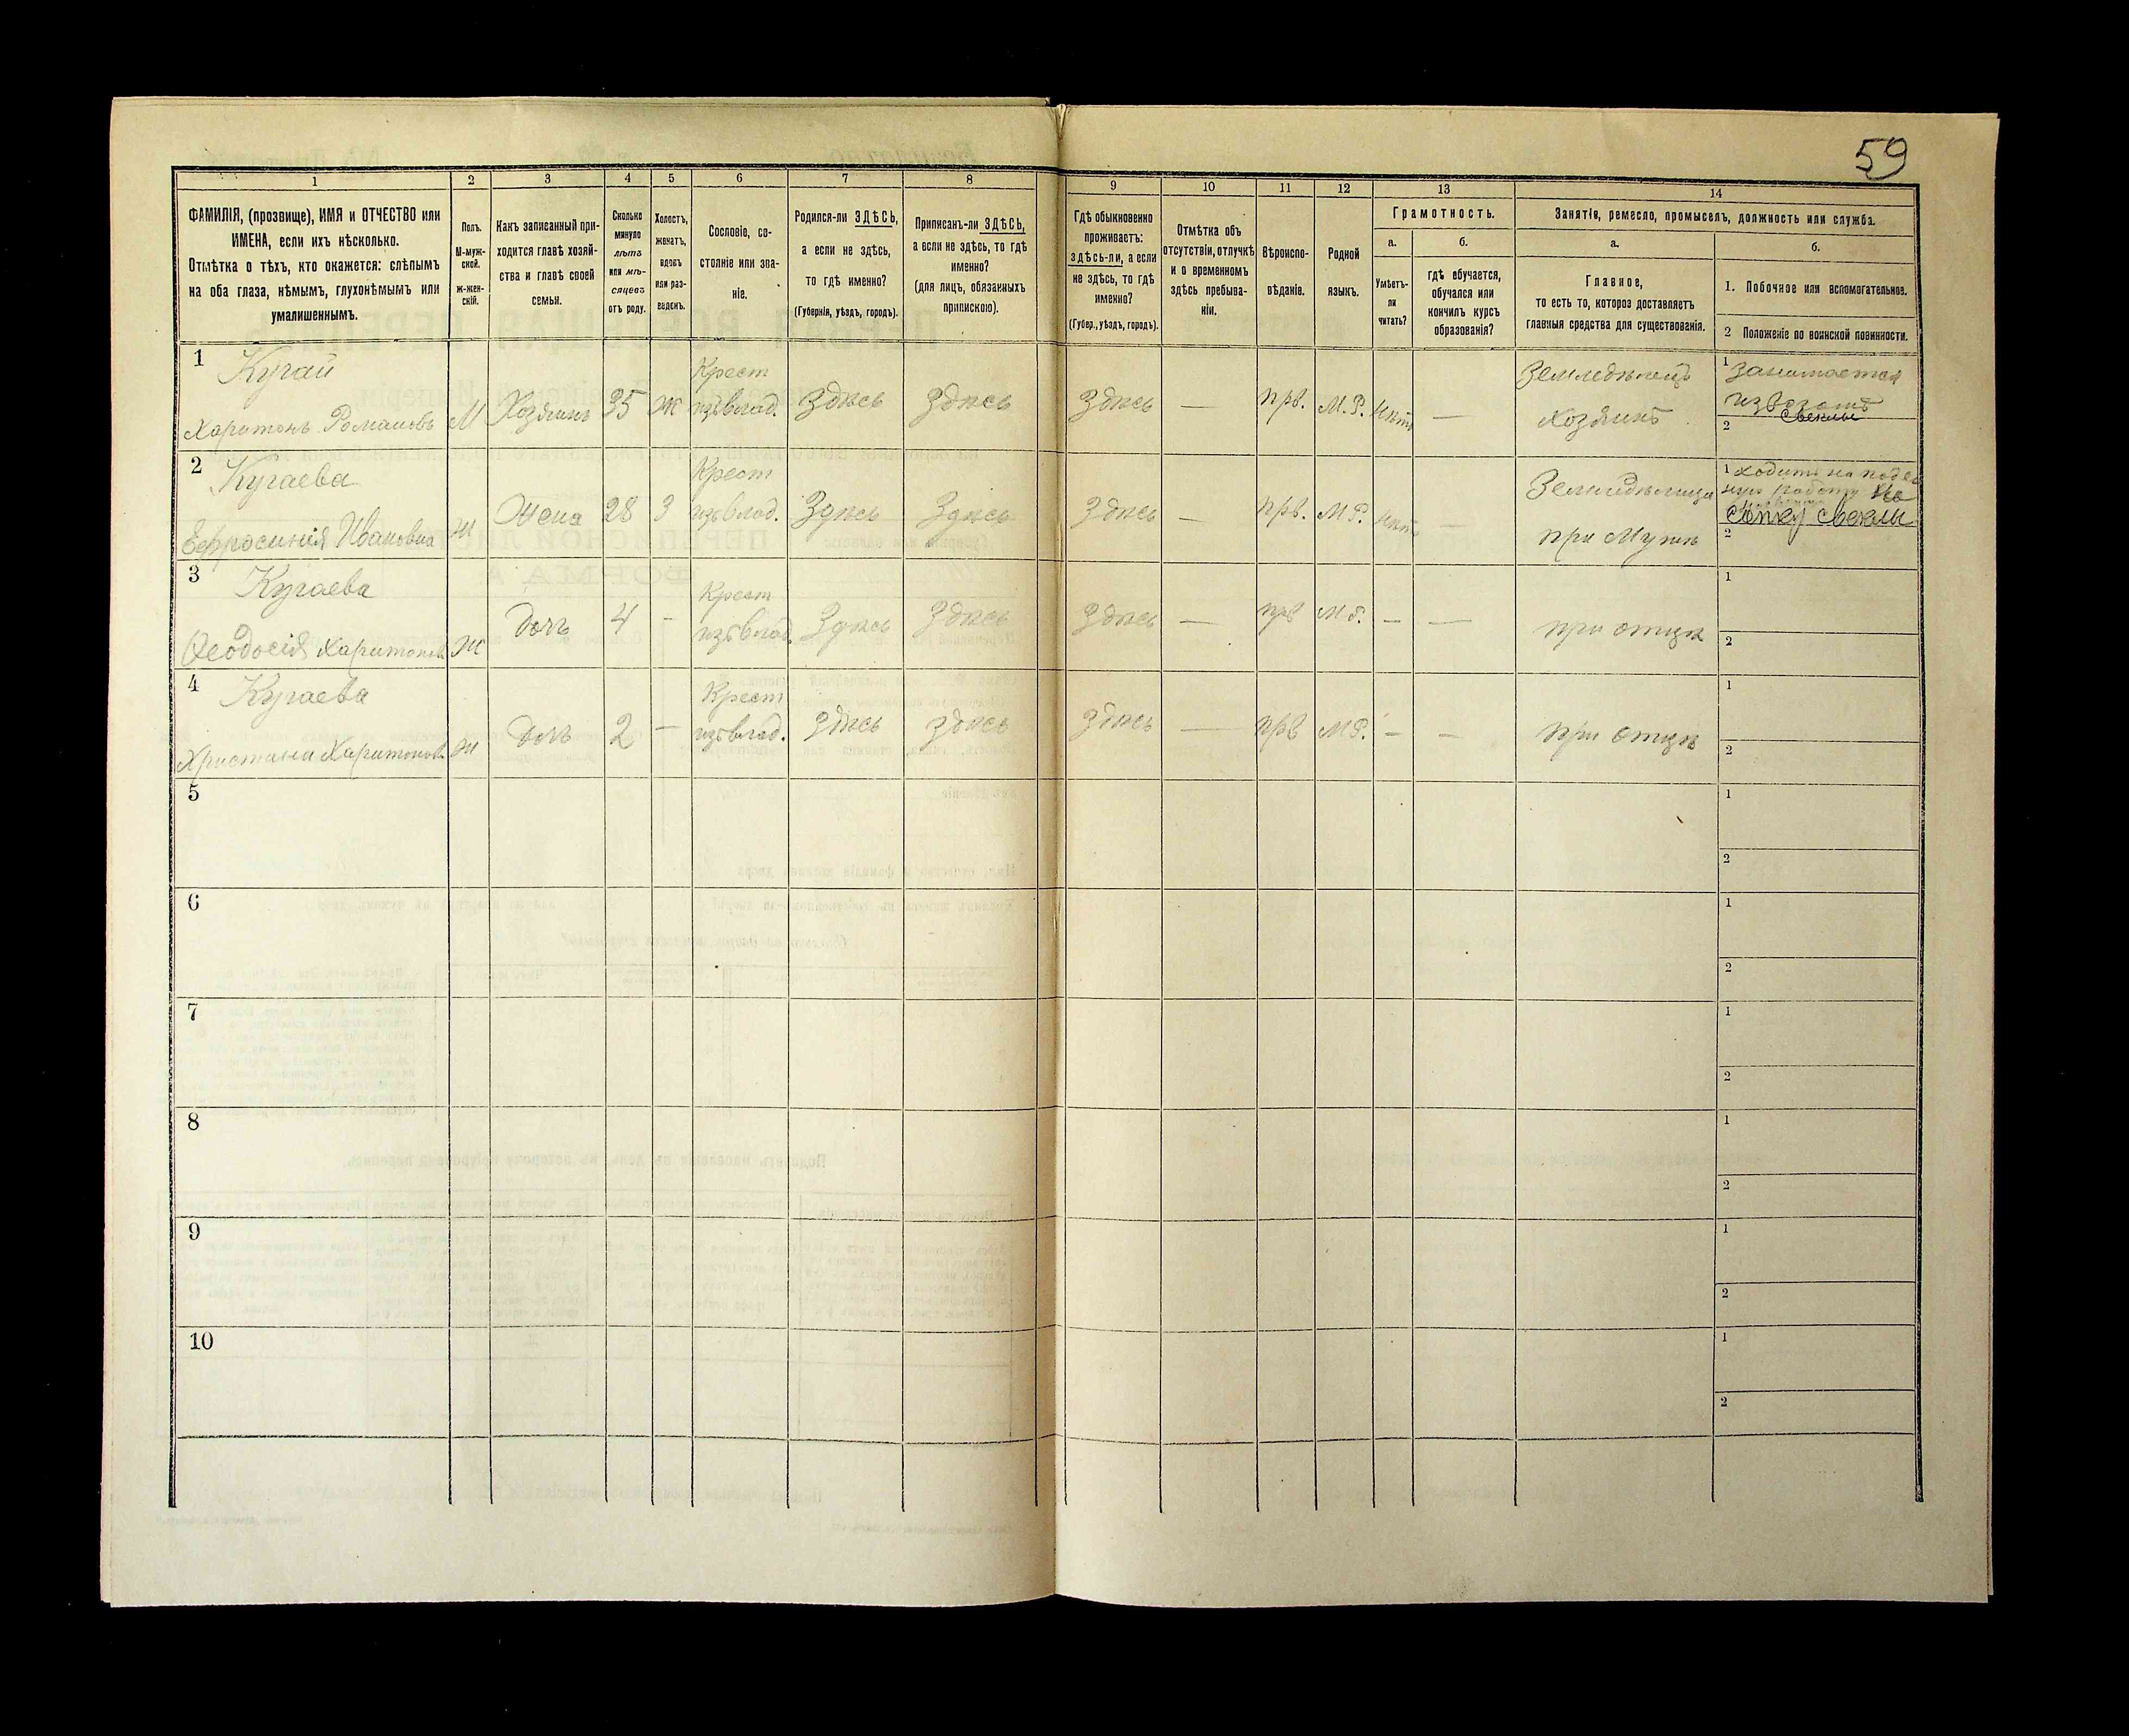 59
1 2 3 4 5 6 7 8 9 10 11 12 13 14
ФАМИЛІЯ, (прозвище), ИМЯ и ОТЧЕСТВО или
ИМЕНА, если ихъ нѣсколько.
Отмѣтка о тѣхъ, кто окажется: слѣпымъ
на оба глаза, нѣмымъ, глухонѣмымъ или
умалишеннымъ.
Полъ.
М-муж-
ской.
Ж-жен-
скій.
Какъ записанный при-
ходится главѣ хозяй-
ства и главѣ своей
семьи.
Сколько
минуло
лѣтъ
или мѣ-
сяцевъ
отъ роду.
Холостъ,
женатъ,
вдовъ
или раз-
веденъ.
Сословіе, со-
стояніе или зва-
ніе.
Родился-ли ЗДѢСЬ,
а если не здѣсь,
то гдѣ именно?
(Губернія, уѣздъ, городъ).
Приписанъ-ли ЗДѢСЬ,
а если не здѣсь, то гдѣ
именно?
(для лицъ, обязанныхъ
припискою).
Гдѣ обыкновенно
проживаетъ:
здѣсь-ли, а если
не здѣсь, то гдѣ
именно?
(Губер., уѣздъ, городъ).
Отмѣтка объ
отсутствіи, отлучкѣ
и о временномъ
здѣсь пребыва-
ніи.
Вѣроиспо-
вѣданіе.
Родной
языкъ.
Грамотность.
а.
Умѣетъ-
ли
читать?
б.
гдѣ обучается,
обучался или
кончилъ курсъ
образованія?
Занятія, ремесло, промыселъ, должность или служба.
а.
Главное,
то есть то, которое доставляетъ
главныя средства для существованія.
б.
1. Побочное или вспомогательное.
2 Положеніе по воинской повинности.
1 Кугай Крест Земледѣлецъ 1 занимается
Харитонъ Романовъ М Хозяинъ 35 Ж изъ влад. Здѣсь Здѣсь Здѣсь — прв. М.Р. нѣтъ — хозяинъ извозомъ
свеклы
2
2 Кугаева Крест Земледѣлица 1 ходитъ на
работу на
Ефросинія Ивановна Ж Жена 28 З изъ влад. Здѣсь Здѣсь Здѣсь — прв. М.Р. нѣтъ — при Мужѣ свеклы
2
3 Кугаева Крест 1
Ѳеодосія Харитонов Ж Дочь 4 — изъ влад. Здѣсь Здѣсь Здѣсь — прв М.Р. — — при отцѣ 2
4 Кугаева Крест 1
Христина Харитонов Ж Дочь 2 — изъ влад. Здѣсь Здѣсь Здѣсь — прв М.Р. — — при отцѣ 2
5 1
2
6 1
2
7 1
2
8 1
2
9 1
2
10 1
2